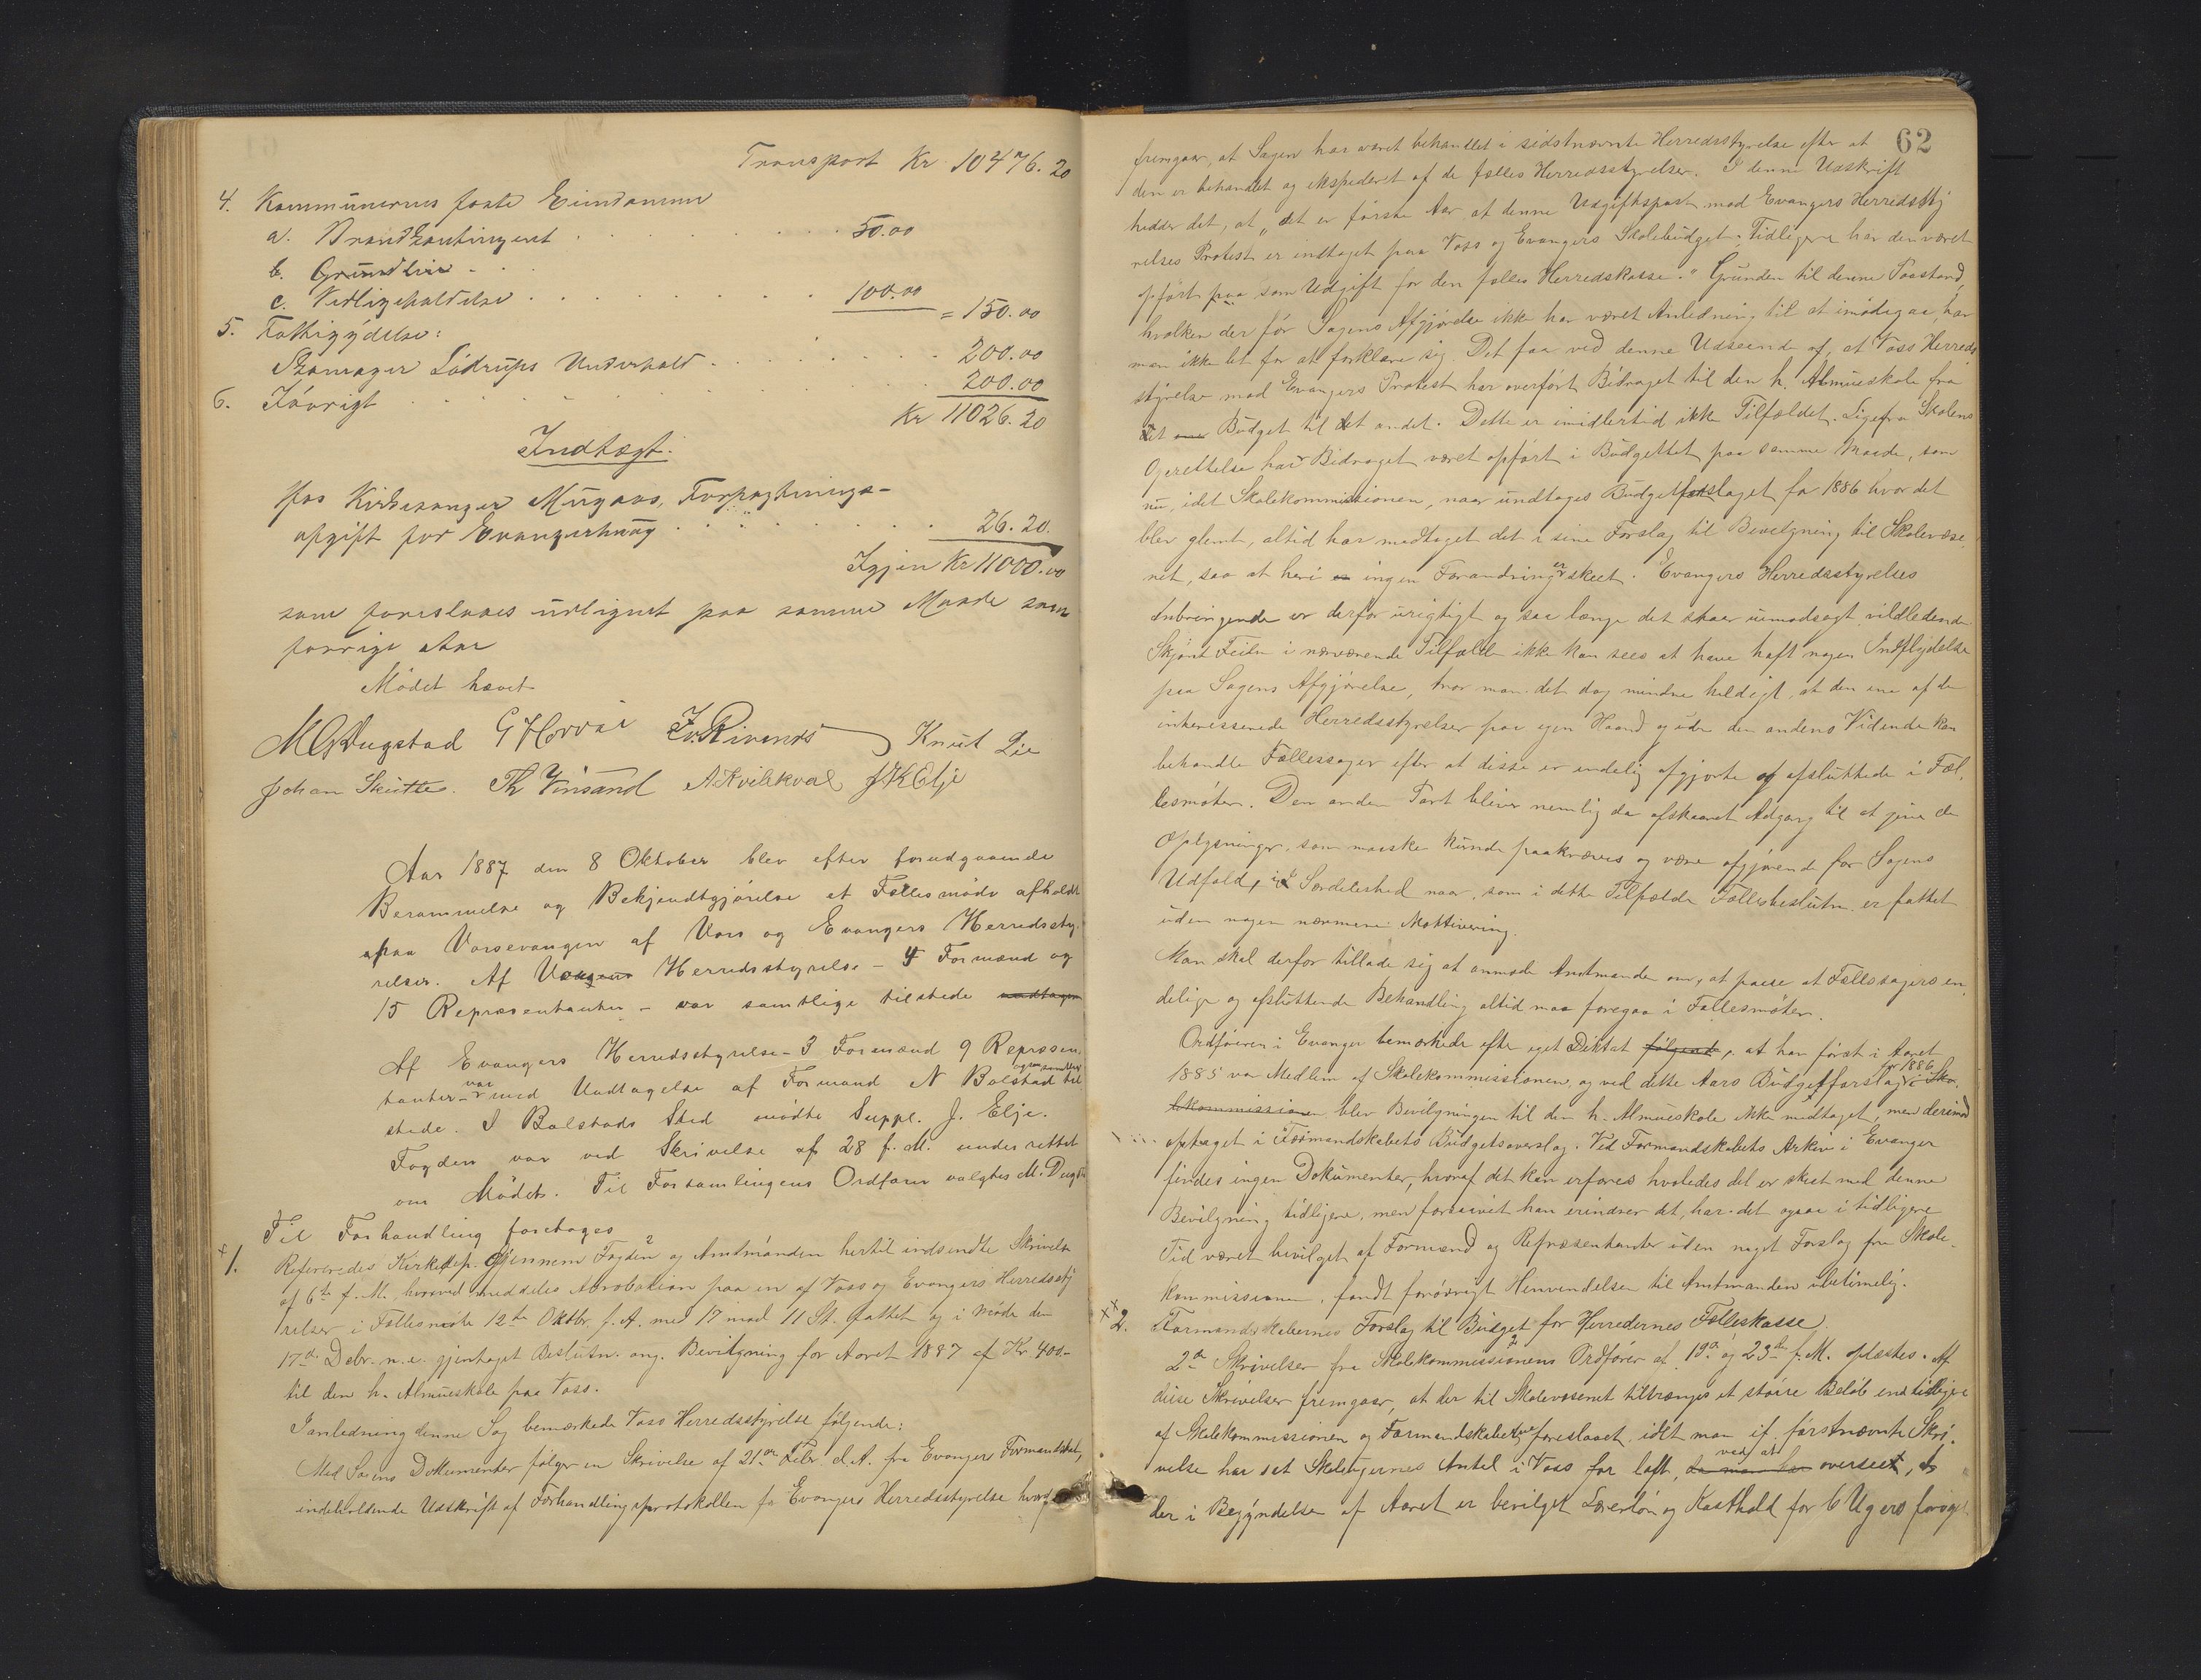 Transport Kr 10476.20
4. Kommunernes faste Eiendomme
a. Brandkontingent . . . . . . 50.00
b. Grundleie - . .
c. Vedligeholdelse . . . . . . 100.00 = 150.00
5. Fattigydelse:
Skomager Lödrups Underhold . . . . . . 200.00
6. Iøvrigt . . . . . . 200.00
Kr 11026.20
Indtægt.
Hos Kirkesanger Mugaas, Forpagtnings-
afgift for Evangerhaug . . . . . . 26.20
Igjen Kr 11000.00
som foreslaaes udlignet paa samme Maade som
forrige Aar
Mödet hævet
M G Dugstad G Horvei Knut Lie
Johan Skutle. Th Vinsand A Kvilekval J K Elje
Aar 1887 den 8 Oktober blev efter forudgaaende
Berammelse og Bekjendtgjörelse et Fællesmöde afholdt
paa Vossevangen af Voss og Evangers Herredssty-
relser. Af Vossens Herredsstyrelse - 4 Formænd og
15 Repræsentanter - var samtlige tilstede undtagen
Af Evangers Herredsstyrelse - 3 Formænd 9 Repræsen-
tanter - var med Undtagelse af Formand N Bolstad samtlige til
stede. I Bolstads Sted mödte Suppl. J. Elje.
Fogden var ved Skrivelse af 28 f.M. underrettet
om Mödet. Til Forsamlingens Ordförer valgtes M. Dugstd
Til Forhandling foretoges
x 1. Refereredes Kirkedep. gjennem Fogden og Amtmanden hertil indsendte Skrivelse
af 6te f.M., hvorved meddeles Approbation paa en af Voss og Evangers Herredssty
relser i Fællesmöte 12te Oktbr. f.A. med 17 mod 11 St. fattet og i Möde den
17de Debr. n.e. gjentaget Beslutn. ang. Bevilgning for Aaret 1887 af Kr. 400.-
til den h. Almueskole paa Voss.
I anledning denne Sag bemærkede Voss Herredsstyrelse følgende:
Med Sagens Dokumenter følger en Skrivelse af 21de Febr d.A. fra Evangers Formandskab,
indeholdende Udskrift af Forhandlingsprotokollen for Evangers Herredsstyrelse hvoraf
62
fremgaar, at Sagen har været behandlet i sidstnævnte Herredsstyrelse efter at
den er behandlet og ekspederet af de fælles Herredsstyrelser. I denne Udskrift
hedder det, at "det er første Aar, at denne Udgiftspost mod Evangers Herredssty
relses Protest er indtaget paa Voss og Evangers Skolebudget. Tidligere har den været
opført paa som Udgift for den fælles Herredskasse." Grunden til denne Paastand,
hvilken der før Sagens Afgjørelse ikke har været Anledning til at imødegaa, har
man ikke let for at forklare sig. Det faar ved denne Udseende af, at Voss Herreds
styrelse mod Evangers Protest har overført Bidraget til den h. Almueskole fra
det ene Budget til det andet. Dette er imidlertid ikke Tilfældet. Ligefra Skolens
Oprettelse har Bidraget været opført i Budgettet paa samme Maade, som
nu, idet Skolekommissionen, naar undtages Budgetforslaget for 1886 hvor det
blev glemt, altid har medtaget det i sine Forslag til Bevilgning til Skolevæse-
net, saa at heri er ingen Forandring er skeet. Evangers Herredsstyrelses
Anbringende er derfor urigtigt og saa længe det staar uimodsagt vildledende
Skjønt Feilen i nærværende Tilfælde ikke kan sees at have haft nogen Indflydelse
paa Sagens Afgjørelse, tror man det dog mindre heldigt, at den ene af de
interesserede Herredsstyrelser paa egen Haand og uden den andens Vidende kan
behandle Fællessager efter at disse er endelig afgjorte og afsluttede i Fæl-
lesmøter. Den anden Part bliver nemlig da afskaaret Adgang til at give de
Oplysninger, som maaske kunde paakræves og være afgjørende for Sagens
Udfald, i Særdeleshed naar, som i dette Tilfælde Fællesbeslutn. er fattet
uden nogen nærmere Mottivering.
Man skal derfor tillade sig at anmode Amtmanden om, at paase at Fællessagers en-
delige og afsluttende Behandling altid maa foregaa i Fællesmøter.
Ordføreren i Evanger bemærkede efter eget Diktat følgende, at han først i Aaret
1885 var Medlem af Skolekommissionen, og ved dette Aars Budgetforslag for 1886 i Sko-
lekommissionen blev Bevilgningen til den h. Almueskole ikke medtaget, men derimod
optaget i Formandskabets Budgetsoverslag. Ved Formandskabets Arkiv i Evanger
findes ingen Dokumenter, hvoraf det kan erfares hvoledes det er skeet med denne
Bevilgning tidligere, men forsaavit han erindrer det, har det ogsaa i tidligere
Tid været bevilget af Formænd og Repræsentanter uden noget Forslag fra Skole-
kommissionen, fandt forøvrigt Henvendelsen til Amtmanden ubetimelig.
xx 2. Formandskabernes Forslag til Budget for Herredernes Fælleskasse.
2de Skrivelser fra Skolekommissionens Ordfører af 19de og 23de f.M. oplæstes. Af
disse Skrivelser fremgaar, at der til Skolevæsenet tiltrænges et større Beløb end tidligere
af Skolekommissionen og Formandskaberne foreslaaet, idet man if. førstnævnte Skri-
velse har sat Skoleugernes Antal i Voss for lavt, da man har ved at overseet, at
der i Begyndelsen af Aaret er bevilget Lærerløn og Kosthold for 6 Ugers forøget